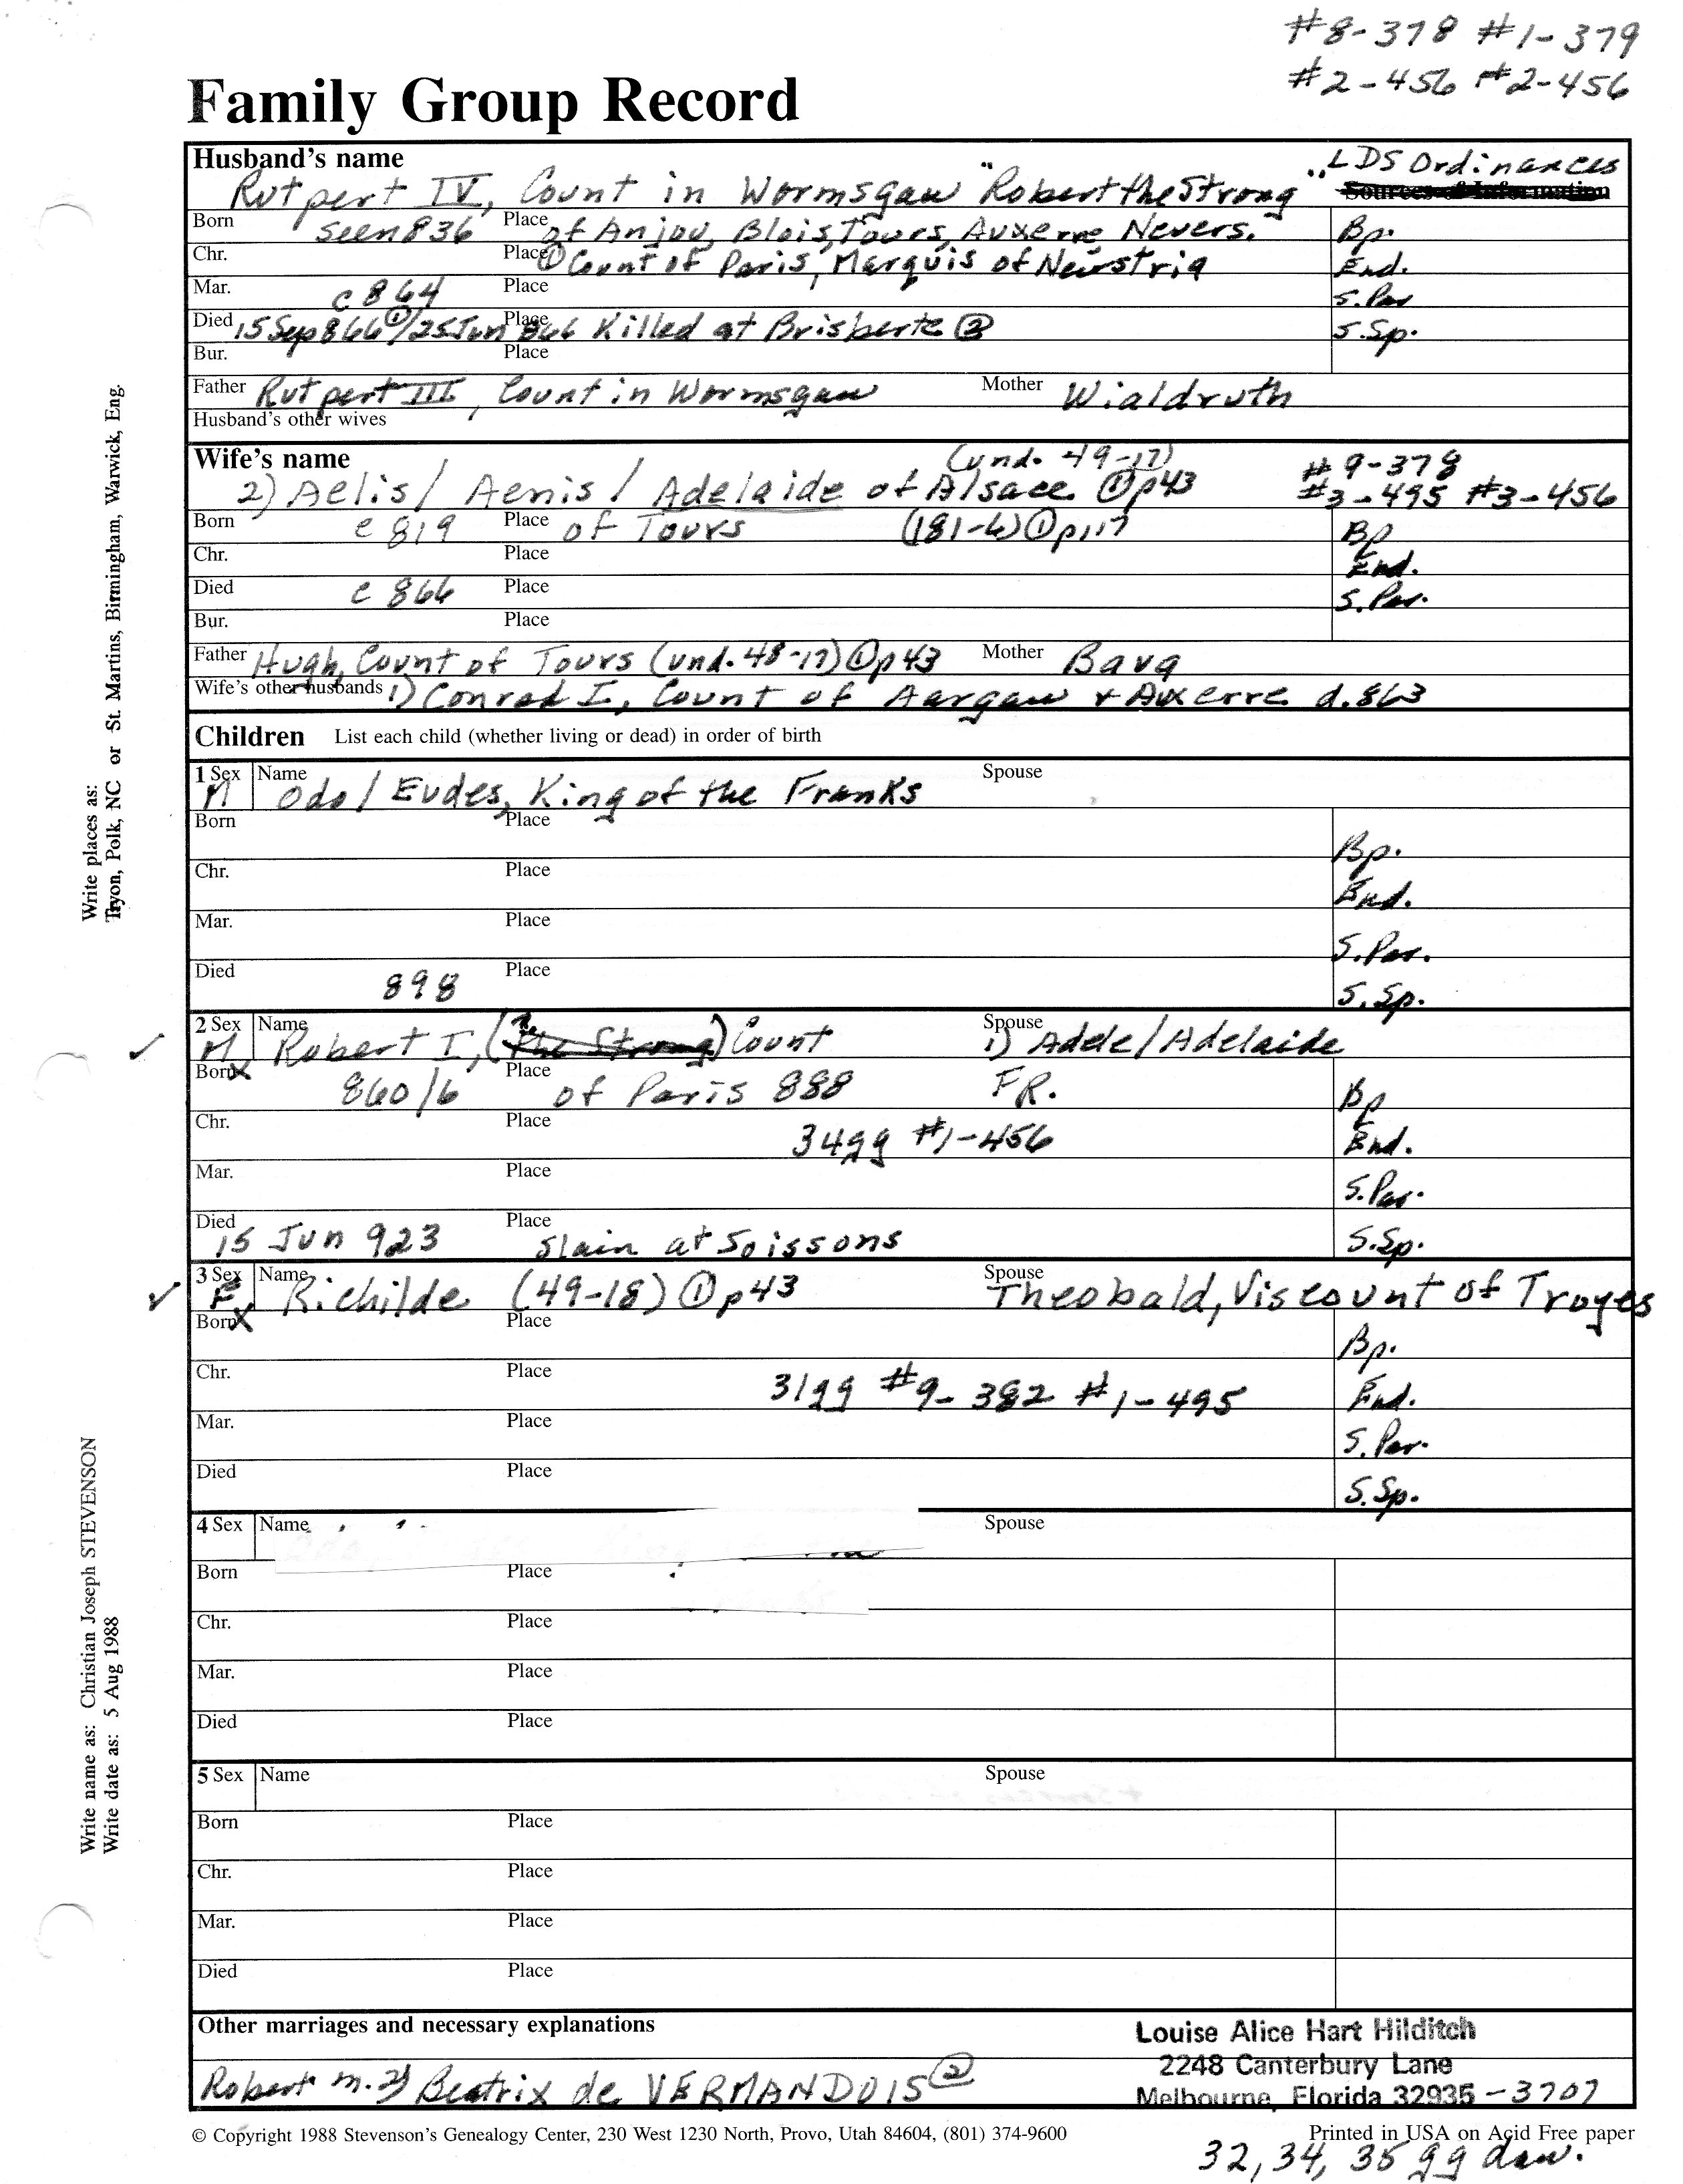 #8-378 #1-379
#2-456 #2-456
Family Group Record
Husband's name
LDS Ordinances
Rutpert IV, Count in Wormsgau "Robert the Strong"
Sources of Information
Born seen 836 Place of Anjou, Blois, Tours, Auxerre Nevers. Bp.
Chr. Place ① Count of Paris, Marquis of Neustria End.
Mar. c 864 Place S. Par
Died 15 Sep 866 ①/25 Jun 866 Place Killed at Brisberte ② S. Sp.
Bur. Place
Father Rutpert III, Count in Wormsgau Mother Wialdruth
Husband's other wives
Wife's name (und. 49-17) #9-378
2) Aelis/ Aenis/ Adelaide of Alsace ① p43 #3-495 #3-456
Born c 819 Place of Tours (181-6) ① p117 Bp
Chr. Place End.
Died c 866 Place S. Par.
Bur. Place
Father Hugh, Count of Tours (und. 48-17) ① p43 Mother Bava
Wife's other husbands 1) Conrad I, Count of Aargau + Auxerre d. 863
Children List each child (whether living or dead) in order of birth
1 Sex Name Spouse
M Odo/ Eudes, King of the Franks
Born Place
Bp.
Chr. Place
End.
Mar. Place
S. Par.
Died Place
898 S. Sp.
2 Sex Name Spouse
M Robert I, (the Strong) Count 1) Adele/Adelaide
Born x Place
860/6 of Paris 888 FR. Bp
Chr. Place
34gg #1-456 End.
Mar. Place
S. Par.
Died Place
15 Jun 923 Slain at Soissons S. Sp.
3 Sex Name Spouse
F Richilde (49-18) ① p43 Theobald, Viscount of Troyes
Born x Place
Bp.
Chr. Place
31gg #9-382 #1-495 End.
Mar. Place
S. Par.
Died Place
S. Sp.
4 Sex Name Spouse
Born Place
Chr. Place
Mar. Place
Died Place
5 Sex Name Spouse
Born Place
Chr. Place
Mar. Place
Died Place
Other marriages and necessary explanations
Louise Alice Hart Hilditch
2248 Canterbury Lane
Robert m. 2) Beatrix de VERMANDOIS ②
Melbourne, Florida 32935 - 3707
© Copyright 1988 Stevenson's Genealogy Center, 230 West 1230 North, Provo, Utah 84604, (801) 374-9600
Printed in USA on Acid Free paper
32, 34, 35 gg dau.
Write places as:
Tryon, Polk, NC or St. Martins, Birmingham, Warwick, Eng.
Write name as: Christian Joseph STEVENSON
Write date as: 5 Aug 1988